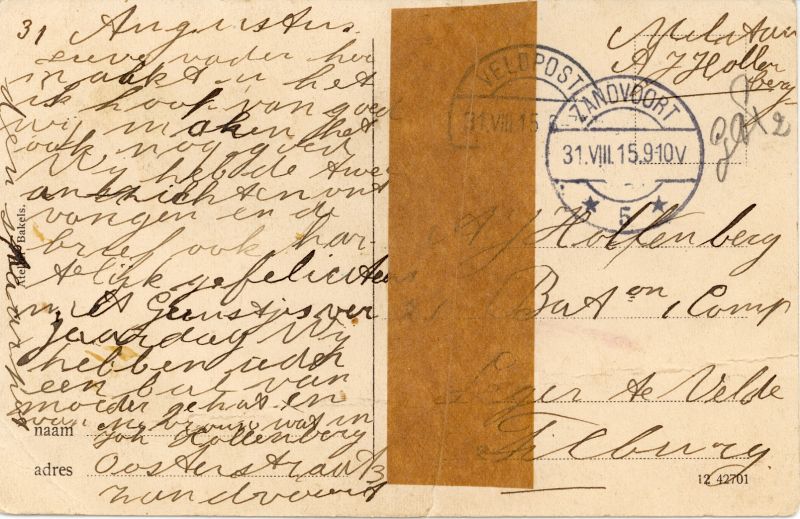 31 Augustus
lieve vader hoe
maakt u het
ik hoop van goed
wij maken het
ook nog goed
Wy hebde twee
ansichten ont
vangen en de
brief ook har
telijk gefeliciteer
met Guustjes ver
jaardag Wy
hebben ieder
een bal van
moeder gehat en
van mevrouw wat in
naam Joh Hollenberg
adres Oosterstraat 13
zandvoort
Atelier Bakels.
VELDPOST
31.VIII.15
ZANDVOORT
31.VIII.15.9-10V
5
Militair
A J Hollen
berg
A J Hollenberg
Bat on 1 Comp
Leger te Velde
Tilburg
12 42701